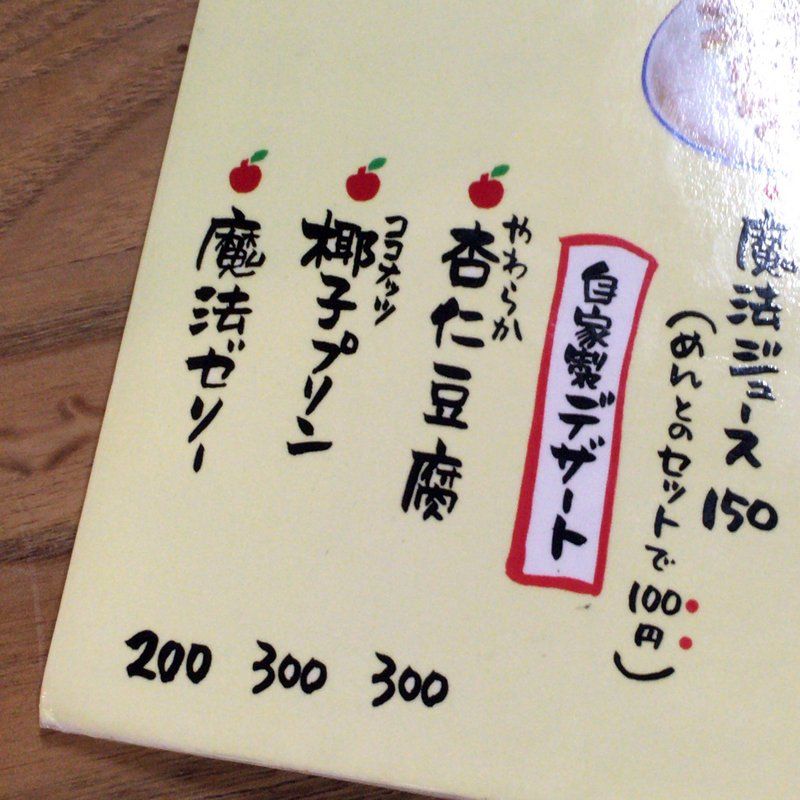 魔法ジュース 150
(めんとのセットで100円)
自家製デザート
やわらか
杏仁豆腐 300
ココナッツ
椰子プリン 300
魔法ゼリー 200